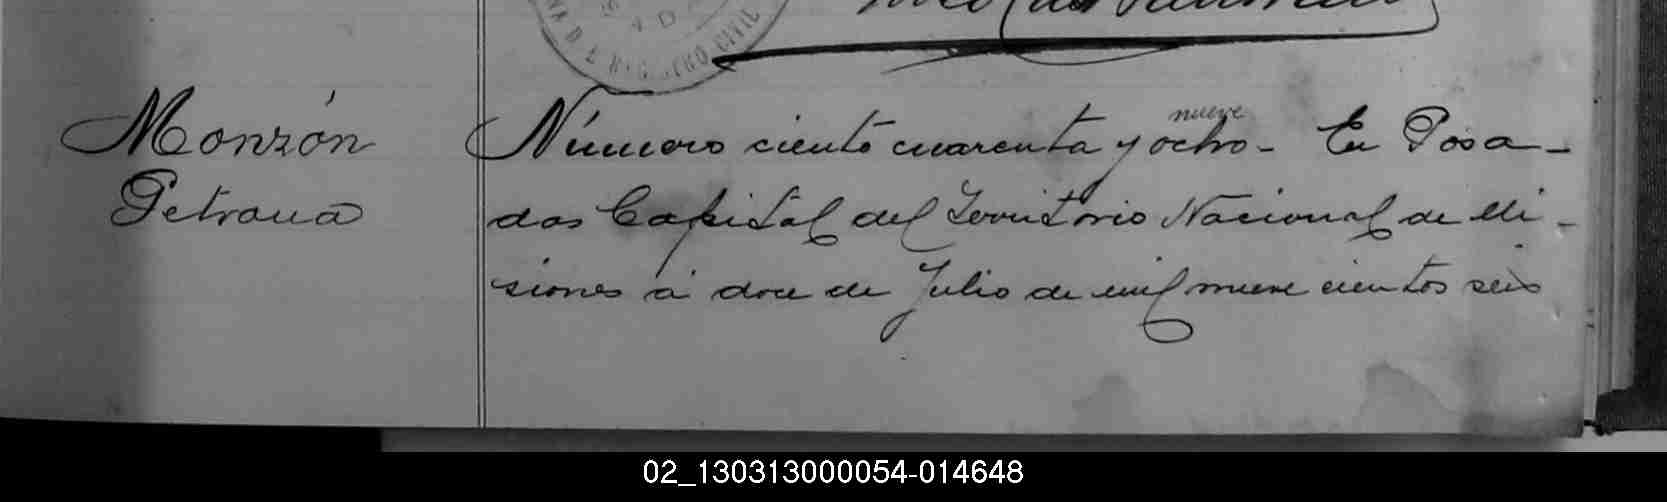 REGISTRO CIVIL
Monzón
Petrona
nueve
Número ciento cuarenta y ocho - En Posa-
das Capital del Territorio Nacional de Mi-
siones á doce de Julio de mil nueve cientos seis
02_130313000054-014648